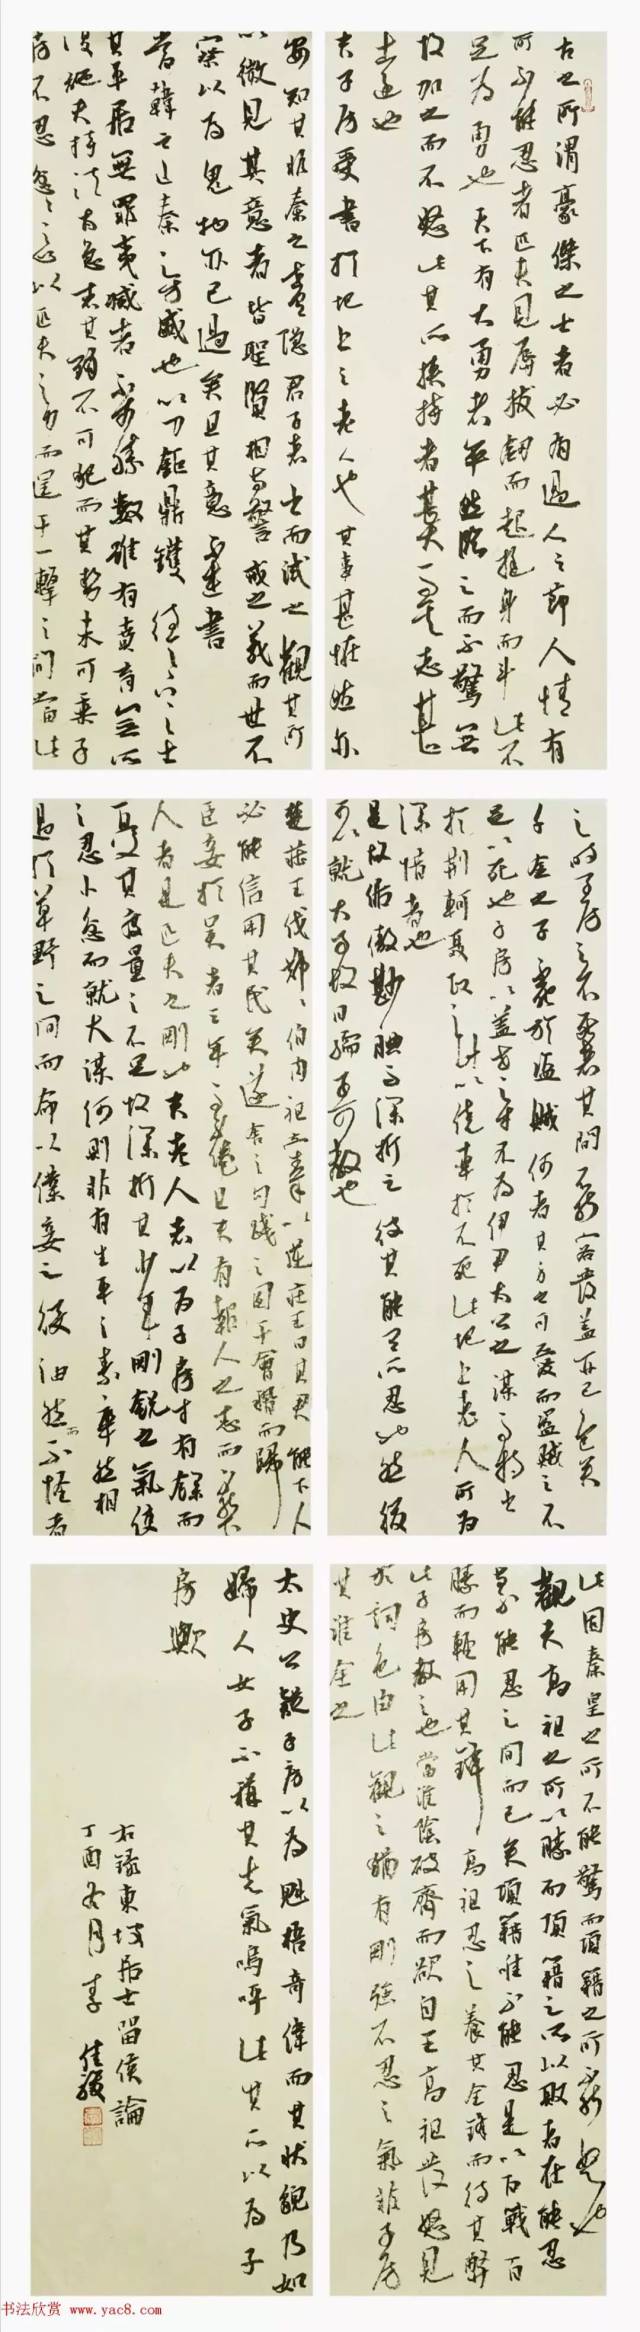 古之所謂豪傑之士者必有過人之節人情有
所不能忍者匹夫見辱拔劍而起挺身而斗此不
足為勇也天下有大勇者卒然臨之而不驚無
故加之而不怒此其所挾持者甚大而其志甚
遠也
夫子房受書於圯上之老人也其事甚怪然亦
安知其非秦之世有隱君子者出而試之觀其所
以微見其意者皆聖賢相與警戒之義而世不
察以為鬼物亦已過矣且其意不在書
當韓之亡秦之方盛也以刀鋸鼎鑊待天下之士
其平居無罪夷滅者不可勝數雖有賁育無所
復施夫持法太急者其鋒不可犯而其勢未可乘子
房不忍忿忿之心以匹夫之力而逞于一擊之間當此
之時子房之不死者其間不能容髮蓋亦已危矣
千金之子不死於盜賊何者其身之可愛而盜賊之不
足以死也子房以蓋世之才不為伊尹太公之謀而特出
於荊軻聶政之計以僥幸於不死此圯上老人所為
深惜者也
是故倨傲鮮腆而深折之彼其能有所忍也然後
可以就大事故曰孺子可教也
楚莊王伐鄭鄭伯肉袒牽羊以逆莊王曰其君能下人
必能信用其民矣遂舍之勾踐之困于會稽而歸
臣妾於吳者三年而不倦且夫有報人之志而不能下
人者是匹夫之剛也夫老人者以為子房才有餘而
憂其度量之不足故深折其少年剛銳之氣使
之忍小忿而就大謀何則非有生平之素卒然相
遇於草野之間而命以僕妾之役油然而不怪者
此固秦皇之所不能驚而項籍之所不能怒也
觀夫高祖之所以勝而項籍之所以敗者在能忍
與不能忍之間而已矣項籍唯不能忍是以百戰百
勝而輕用其鋒高祖忍之養其全鋒而待其弊
此子房教之也當淮陰破齊而欲自王高祖發怒見
於詞色由此觀之猶有剛強不忍之氣非子房
其誰全之
太史公疑子房以為魁梧奇偉而其狀貌乃如
婦人女子不稱其志氣嗚呼此其所以為子
房歟
右錄東坡居士留侯論
丁酉冬月李佳駿
书法欣赏 www.yac8.com